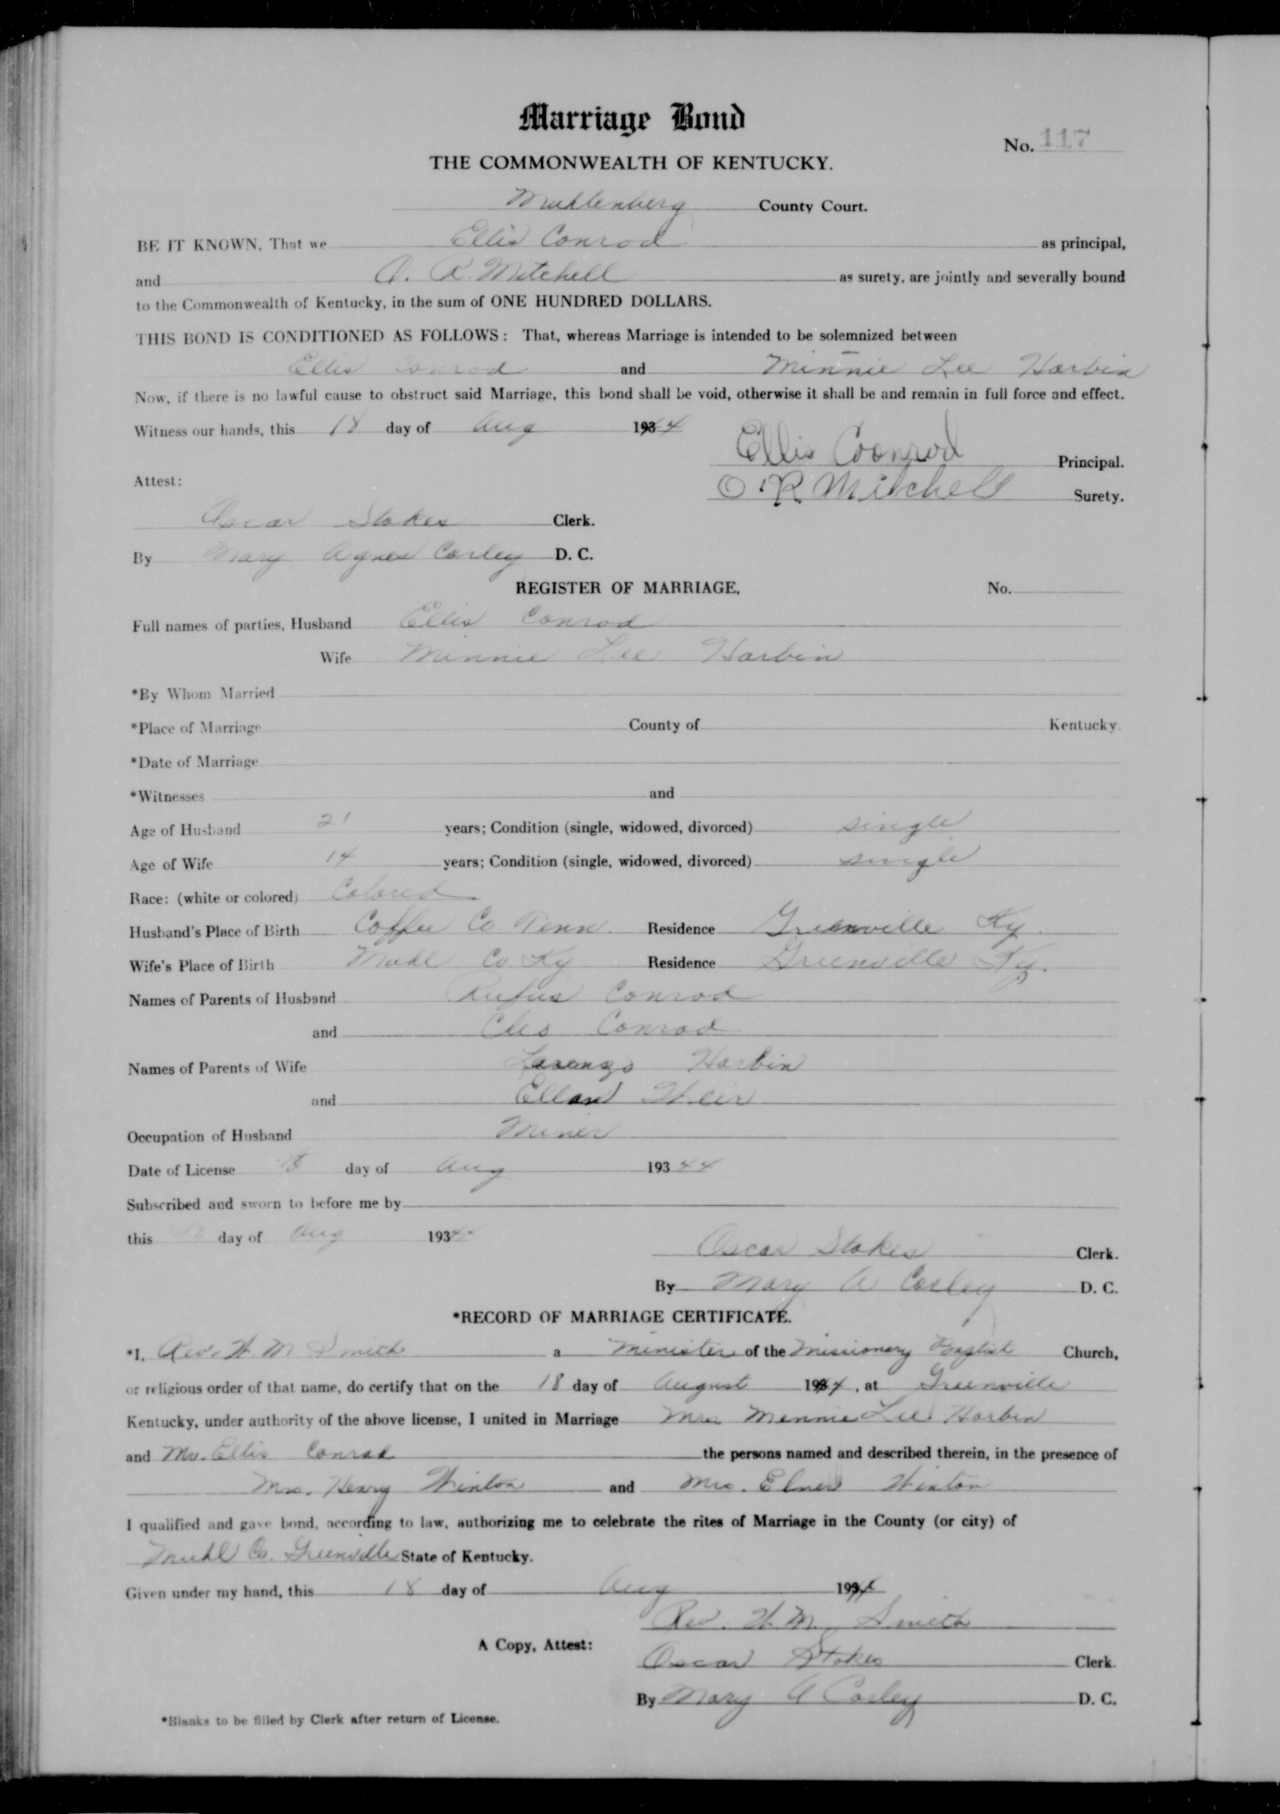 Marriage Bond
No. 117
THE COMMONWEALTH OF KENTUCKY.
Muhlenberg County Court.
BE IT KNOWN, That we Ellis Conrod as principal,
and O. R. Mitchell as surety, are jointly and severally bound
to the Commonwealth of Kentucky, in the sum of ONE HUNDRED DOLLARS.
THIS BOND IS CONDITIONED AS FOLLOWS: That, whereas Marriage is intended to be solemnized between
Ellis Conrod and Minnie Lee Harbin
Now, if there is no lawful cause to obstruct said Marriage, this bond shall be void, otherwise it shall be and remain in full force and effect.
Witness our hands, this 18 day of Aug 1944
Ellis Coonrod Principal.
Attest:
O R Mitchell Surety.
Oscar Stokes Clerk.
By Mary Agnes Corley D. C.
REGISTER OF MARRIAGE, No.
Full names of parties, Husband Ellis Conrod
Wife Minnie Lee Harbin
*By Whom Married
*Place of Marriage County of Kentucky.
*Date of Marriage
*Witnesses and
Age of Husband 21 years; Condition (single, widowed, divorced) single
Age of Wife 14 years; Condition (single, widowed, divorced) single
Race: (white or colored) Colored
Husband's Place of Birth Coffee Co. Tenn. Residence Greenville Ky.
Wife's Place of Birth Muhl Co. Ky Residence Greenville Ky.
Names of Parents of Husband Rufus Conrod
and Cleo Conrod
Names of Parents of Wife Lorenzo Harbin
and Ellen Weir
Occupation of Husband Miner
Date of License 18 day of Aug 193 44
Subscribed and sworn to before me by
this 18 day of Aug 193 44
Oscar Stokes Clerk.
By Mary A Corley D. C.
*RECORD OF MARRIAGE CERTIFICATE.
*I, Rev. W. M. Smith a Minister of the Missionary Baptist Church,
or religious order of that name, do certify that on the 18 day of August 1944, at Greenville
Kentucky, under authority of the above license, I united in Marriage Mrs Mennie Lee Harbin
and Mr. Ellis Conrad the persons named and described therein, in the presence of
Mrs. Henry Winton and Mrs. Elner Winton
I qualified and gave bond, according to law, authorizing me to celebrate the rites of Marriage in the County (or city) of
Muhl Co. Greenville State of Kentucky.
Given under my hand, this 18 day of Aug 1944
Rev. W. M. Smith
A Copy, Attest:
Oscar Stokes Clerk.
By Mary A Corley D. C.
*Blanks to be filled by Clerk after return of License.